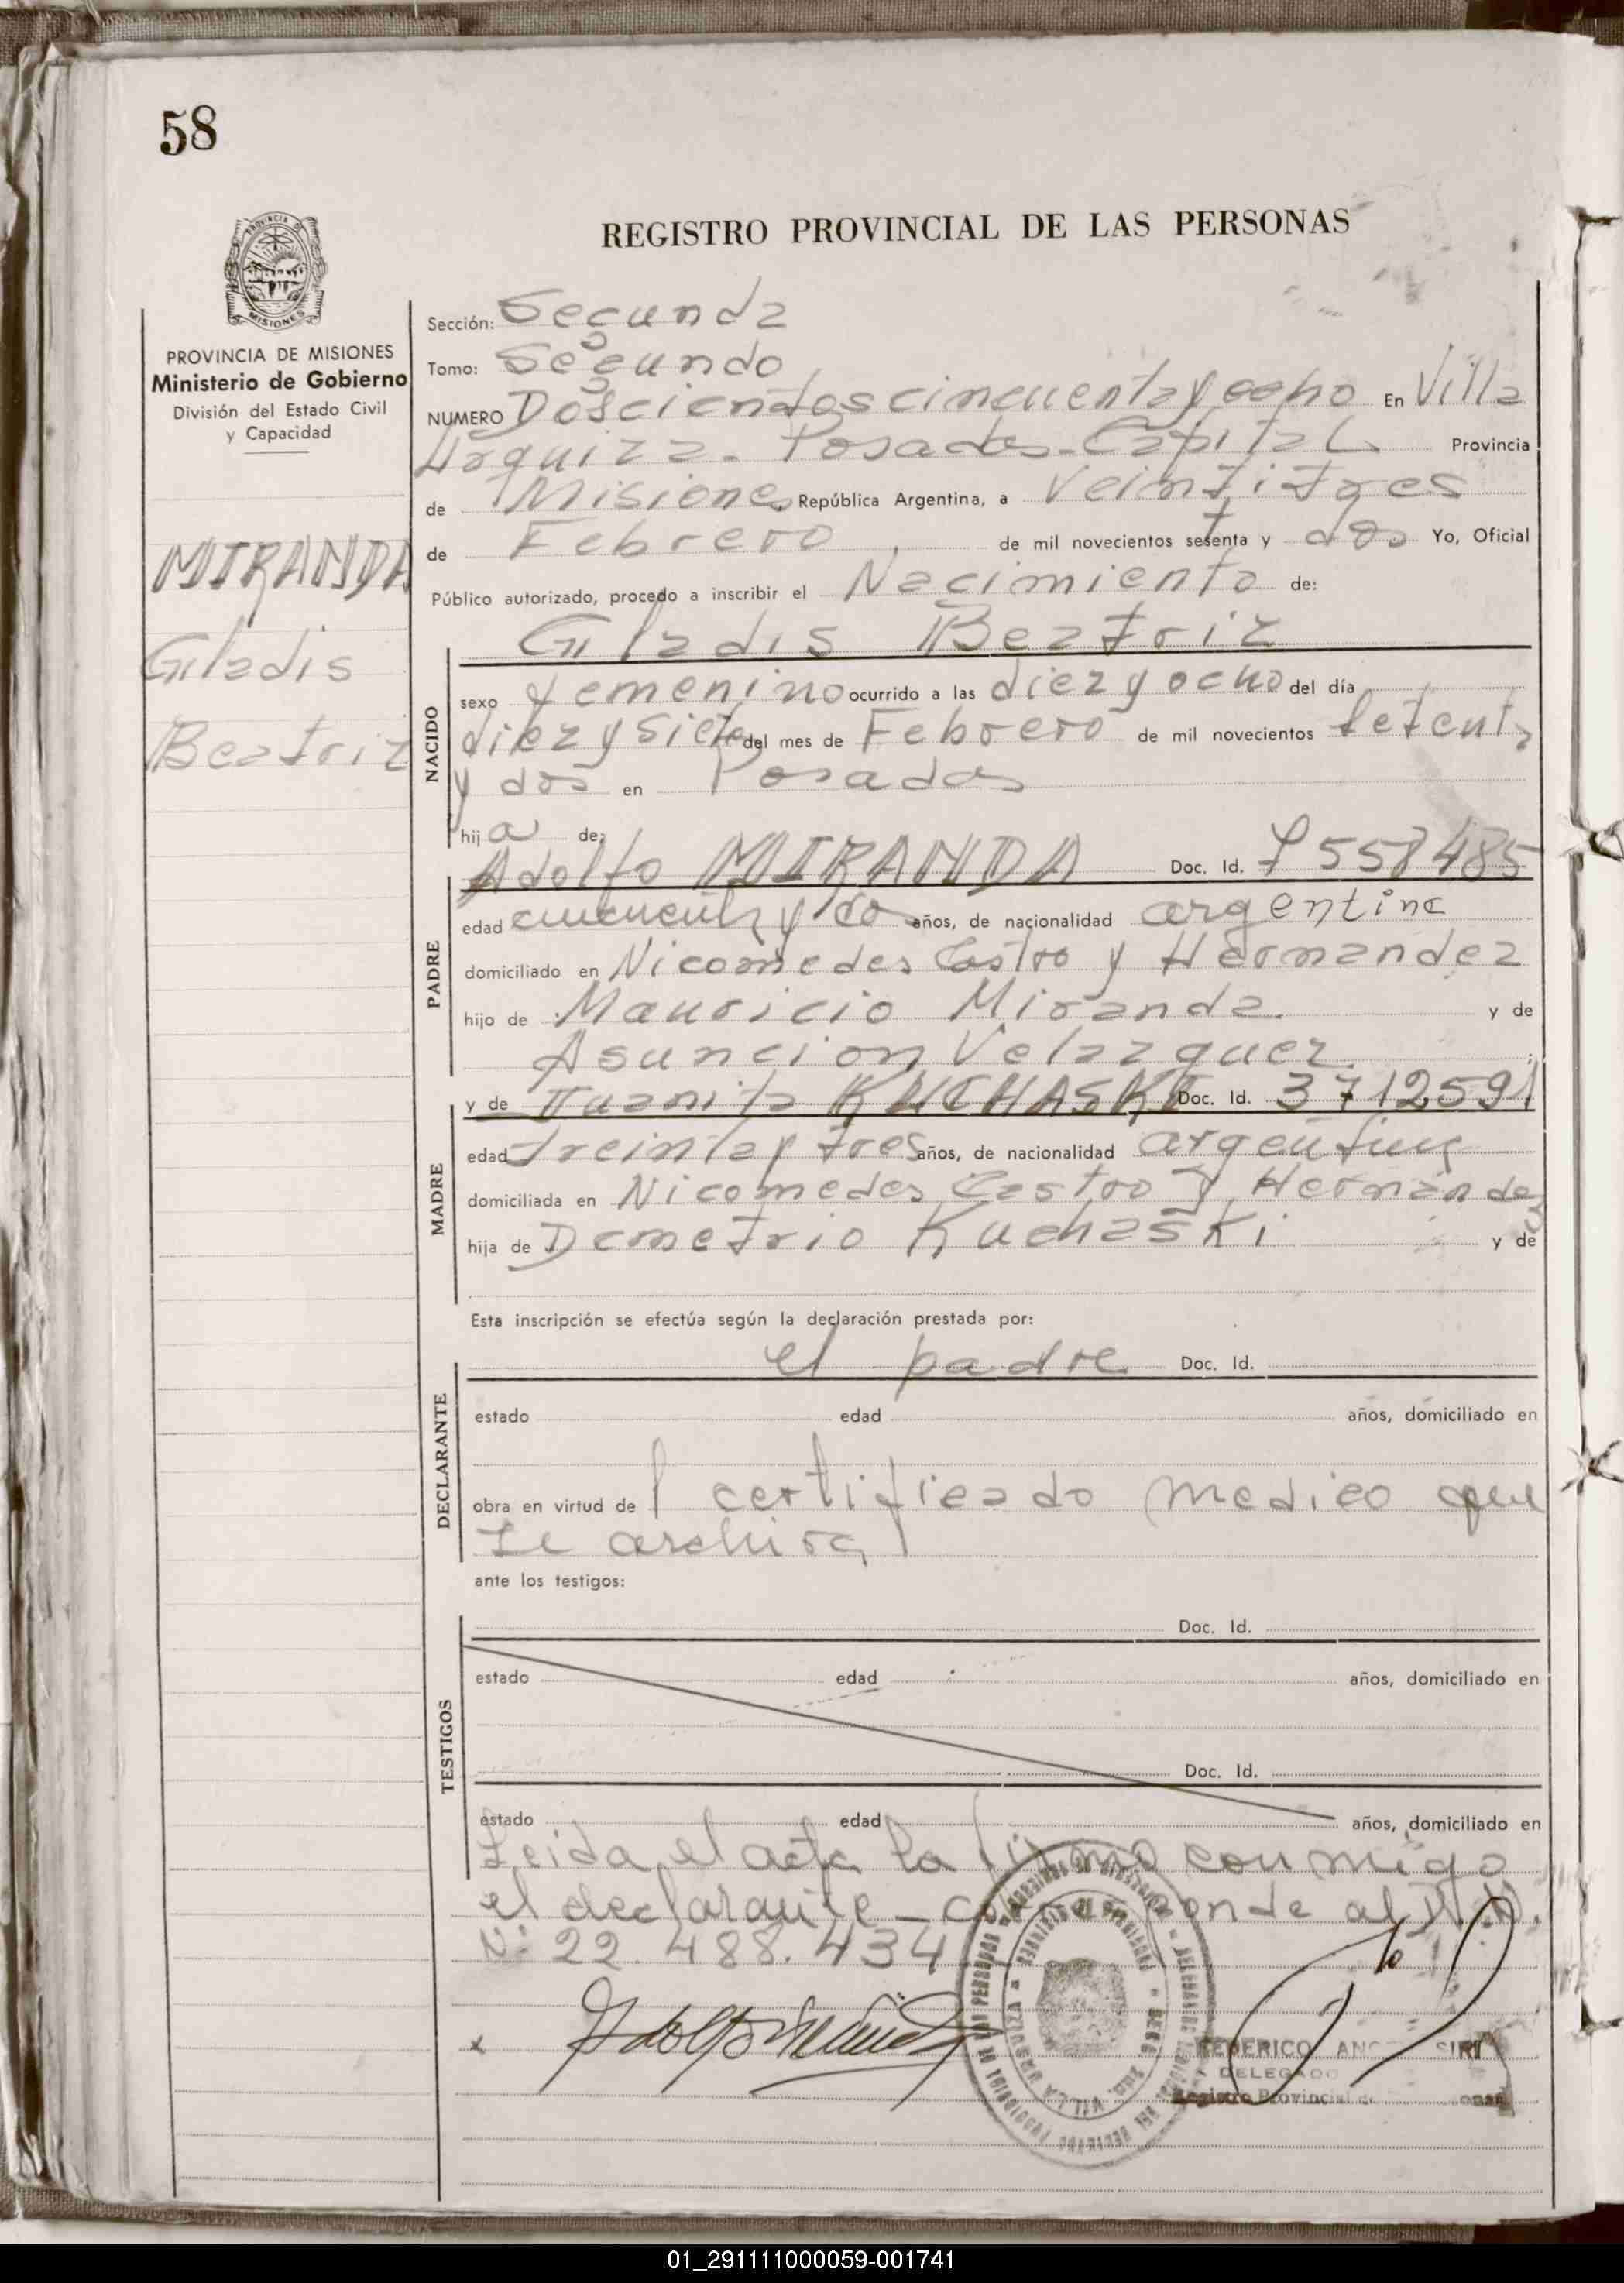 58
REGISTRO PROVINCIAL DE LAS PERSONAS
PROVINCIA
MISIONES
PROVINCIA DE MISIONES
Ministerio de Gobierno
División del Estado Civil
y Capacidad
MIRANDA
Gladis
Beatriz
Sección: Segunda
Tomo: Segundo
NUMERO Doscientos cincuenta y ocho En Villa
Urquiza - Posadas - Capital Provincia
de Misiones República Argentina, a Veintitres
de Febrero de mil novecientos setenta y dos Yo, Oficial
Público autorizado, procedo a inscribir el Nacimiento de:
Gladis Beatriz
NACIDO
sexo femenino ocurrido a las diez y ocho del día
diez y siete del mes de Febrero de mil novecientos setenta
y dos en Posadas
hija de:
Adolfo MIRANDA Doc. Id. 7558485
PADRE
edad cincuenta y dos años, de nacionalidad argentina
domiciliado en Nicomedes Castro y Hernandez
hijo de Mauricio Miranda y de
Asuncion Velazquez
y de Juanita KUCHASKI Doc. Id. 3712591
MADRE
edad treinta y tres años, de nacionalidad argentina
domiciliada en Nicomedes Castro y Hernandez
hija de Demetrio Kuchaski y de
Esta inscripción se efectúa según la declaración prestada por:
el padre Doc. Id.
DECLARANTE
estado edad años, domiciliado en
obra en virtud del certificado medico que
se archiva
ante los testigos:
Doc. Id.
TESTIGOS
estado edad años, domiciliado en
Doc. Id.
estado edad años, domiciliado en
Leida el acta la firmo conmigo
el declarante - corresponde al
Nº 22.488.434
x Adolfo Miranda
VILLA URQUIZA
FEDERICO SIRI
DELEGADO
Registro Provincial
01_291111000059-001741